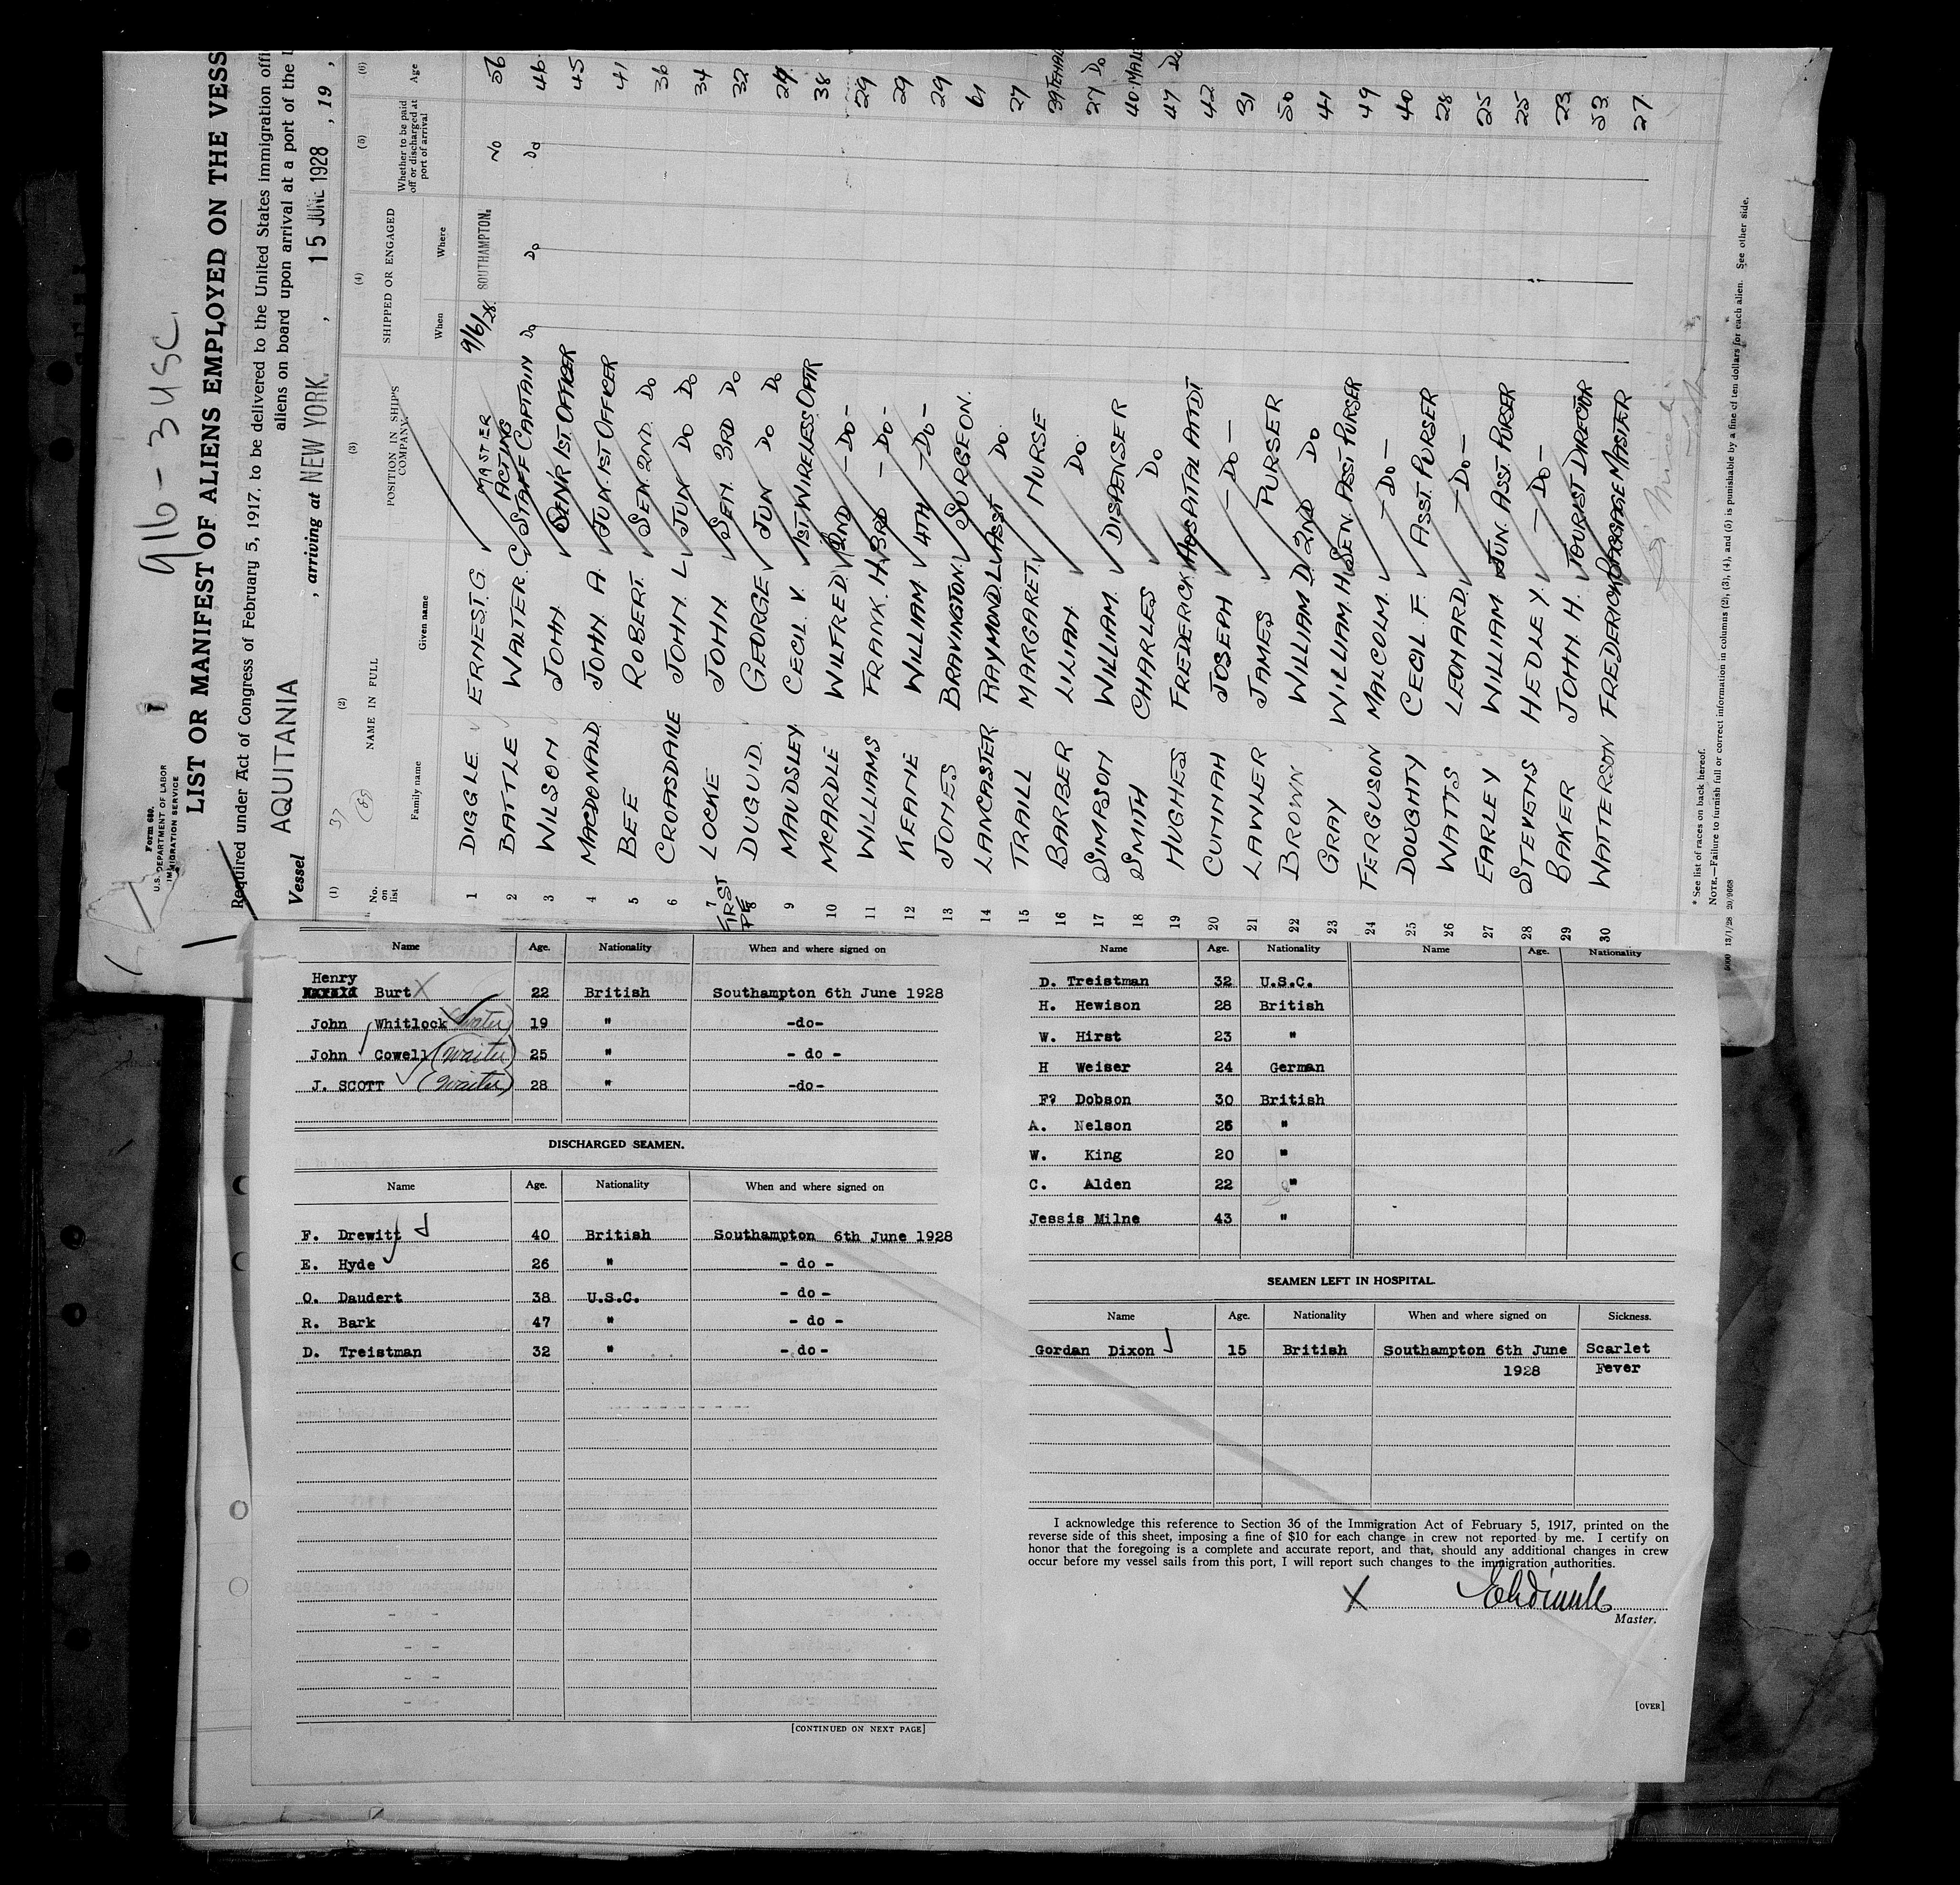 916 - 3 USC.
Form 680.
U.S. DEPARTMENT OF LABOR
IMMIGRATION SERVICE
LIST OR MANIFEST OF ALIENS EMPLOYED ON THE VESS
Required under Act of Congress of February 5, 1917, to be delivered to the United States immigration offi
aliens on board upon arrival at a port of the U
Vessel AQUITANIA , arriving at NEW YORK. , 15 JUNE 1928 , 19 ,
37
(1) (2) (3) (4) (5) (6)
No. on list NAME IN FULL POSITION IN SHIP'S COMPANY SHIPPED OR ENGAGED Whether to be paid off or discharged at port of arrival Age
Family name Given name When Where
1 DIGGLE ERNEST. G. MASTER 9/6/28. SOUTHAMPTON. No 56
2 BATTLE WALTER. C ACTING STAFF CAPTAIN Do Do Do 46
3 WILSON JOHN SENR 1ST. OFFICER 45
4 MACDONALD JOHN A. JUN. 1ST OFFICER 41
5 BEE ROBERT. SEN. 2ND. Do 36
6 CROASDAILE JOHN. L. JUN Do Do 34
7 LOCKE JOHN. SEN. 3RD Do 32
8 DUGUID. GEORGE JUN Do Do 29
FIRST
9 MAUDSLEY CECIL. V. 1ST. WIRELESS OPTR 38
10 McARDLE WILFRED. 2ND - Do - 29
11 WILLIAMS FRANK. H. 3RD - Do - 29
12 KEANE WILLIAM 4TH - Do - 29
13 JONES BRAVINGTON. SURGEON. 61
14 LANCASTER RAYMOND. L. ASST Do. 27
15 TRAILL MARGARET. NURSE 39 FEMALE
16 BARBER LILIAN. Do. 27 Do
17 SIMPSON WILLIAM. DISPENSER 40 MALE
18 SMITH CHARLES Do 47 Do
19 HUGHES FREDERICK HOSPITAL ATTDT 42
20 CUNNAH JOSEPH - Do - 31
21 LAWLER JAMES PURSER 50
22 BROWN WILLIAM D 2ND Do 41
23 GRAY WILLIAM. H. SEN. ASST PURSER 49
24 FERGUSON MALCOLM. - Do - 40
25 DOUGHTY CECIL. F. ASST. PURSER 28
26 WATTS LEONARD. - Do - 25
27 EARLEY WILLIAM JUN. ASST. PURSER 25
28 STEVENS HEDLEY. - Do - 23
29 BAKER JOHN. H. TOURIST DIRECTOR 53
30 WATTERSON FREDERICK BAGGAGE MASTER 27
* See list of races on back hereof.
NOTE.—Failure to furnish full or correct information in columns (2), (3), (4), and (5) is punishable by a fine of ten dollars for each alien. See other side.
5000 13/1/28 20/9668
Name Age. Nationality When and where signed on
Henry
Burt X 22 British Southampton 6th June 1928
John Whitlock (Waiter) 19 " -do-
John Cowell (Waiter) 25 " - do -
J. SCOTT (Waiter) 28 " -do-
DISCHARGED SEAMEN.
Name Age. Nationality When and where signed on
F. Drewitt 40 British Southampton 6th June 1928
E. Hyde 26 " - do -
O. Daudert 38 U.S.C. - do -
R. Bark 47 " - do -
D. Treistman 32 " - do -
[CONTINUED ON NEXT PAGE]
Name Age. Nationality Name Age. Nationality
D. Treistman 32 U.S.C.
H. Hewison 28 British
W. Hirst 23 "
H Weiser 24 German
F? Dobson 30 British
A. Nelson 26 "
W. King 20 "
C. Alden 22 "
Jessis Milne 43 "
SEAMEN LEFT IN HOSPITAL.
Name Age. Nationality When and where signed on Sickness.
Gordan Dixon 15 British Southampton 6th June 1928 Scarlet Fever
I acknowledge this reference to Section 36 of the Immigration Act of February 5, 1917, printed on the
reverse side of this sheet, imposing a fine of $10 for each change in crew not reported by me. I certify on
honor that the foregoing is a complete and accurate report, and that, should any additional changes in crew
occur before my vessel sails from this port, I will report such changes to the immigration authorities.
X
Master.
[OVER]